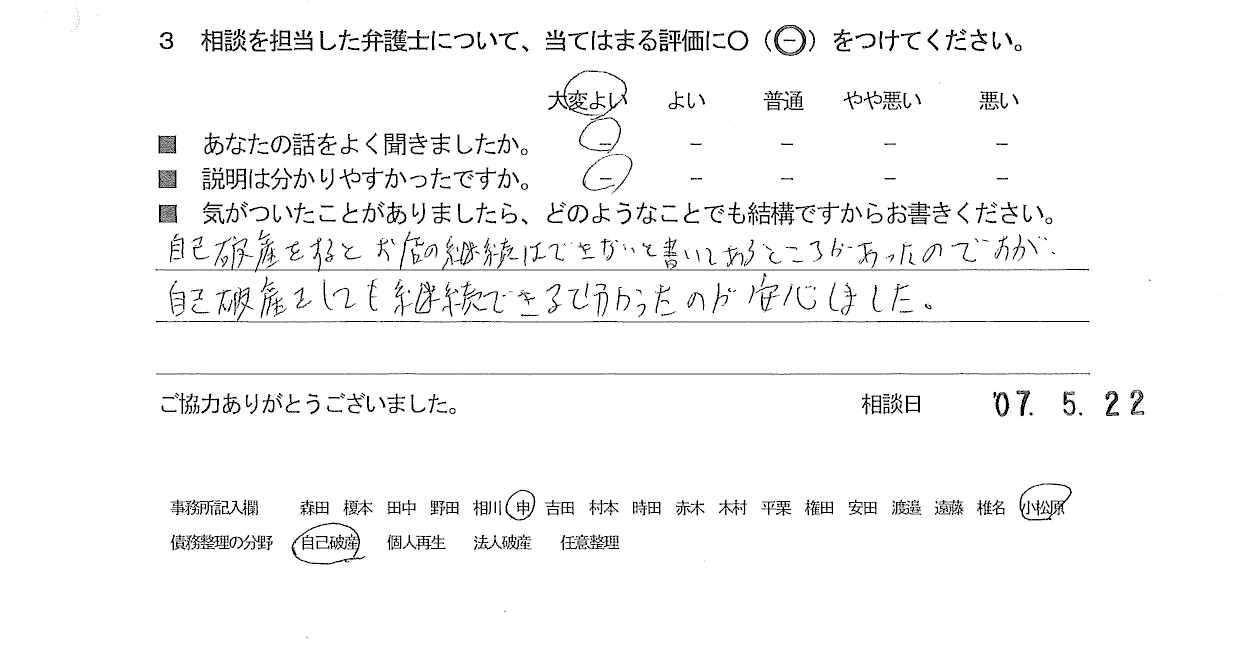 3 相談を担当した弁護士について、当てはまる評価に○(㊀)をつけてください。
大変よい よい 普通 やや悪い 悪い
■ あなたの話をよく聞きましたか。 − − − − −
■ 説明は分かりやすかったですか。 − − − − −
■ 気がついたことがありましたら、どのようなことでも結構ですからお書きください。
自己破産をするとお店の継続はできないと書いてあるところがあったのですが、
自己破産をしても継続できるで分かったのが安心しました。
ご協力ありがとうございました。 相談日 '07. 5. 22
事務所記入欄 森田 榎本 田中 野田 相川 申 吉田 村本 時田 赤木 木村 平栗 権田 安田 渡邉 遠藤 椎名 小松原
債務整理の分野 自己破産 個人再生 法人破産 任意整理